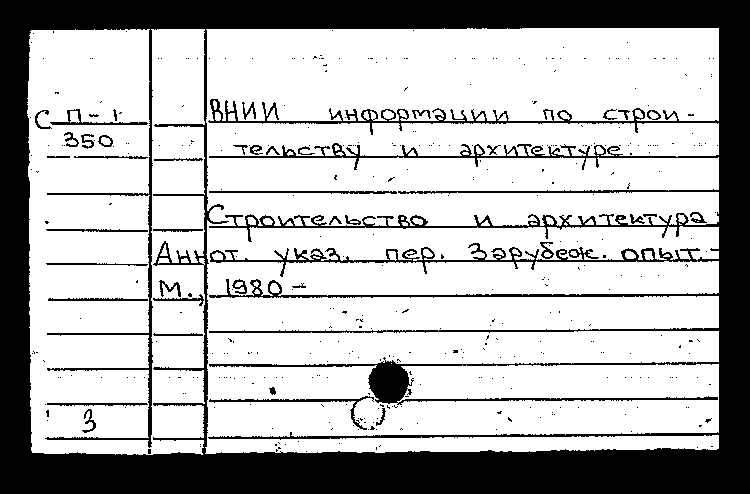 С П-1
350
ВНИИ информации по строи-
тельству и архитектуре.
Строительство и архитектура:
Аннот. указ. пер. Зарубеж. опыт. -
М., 1980 -
3